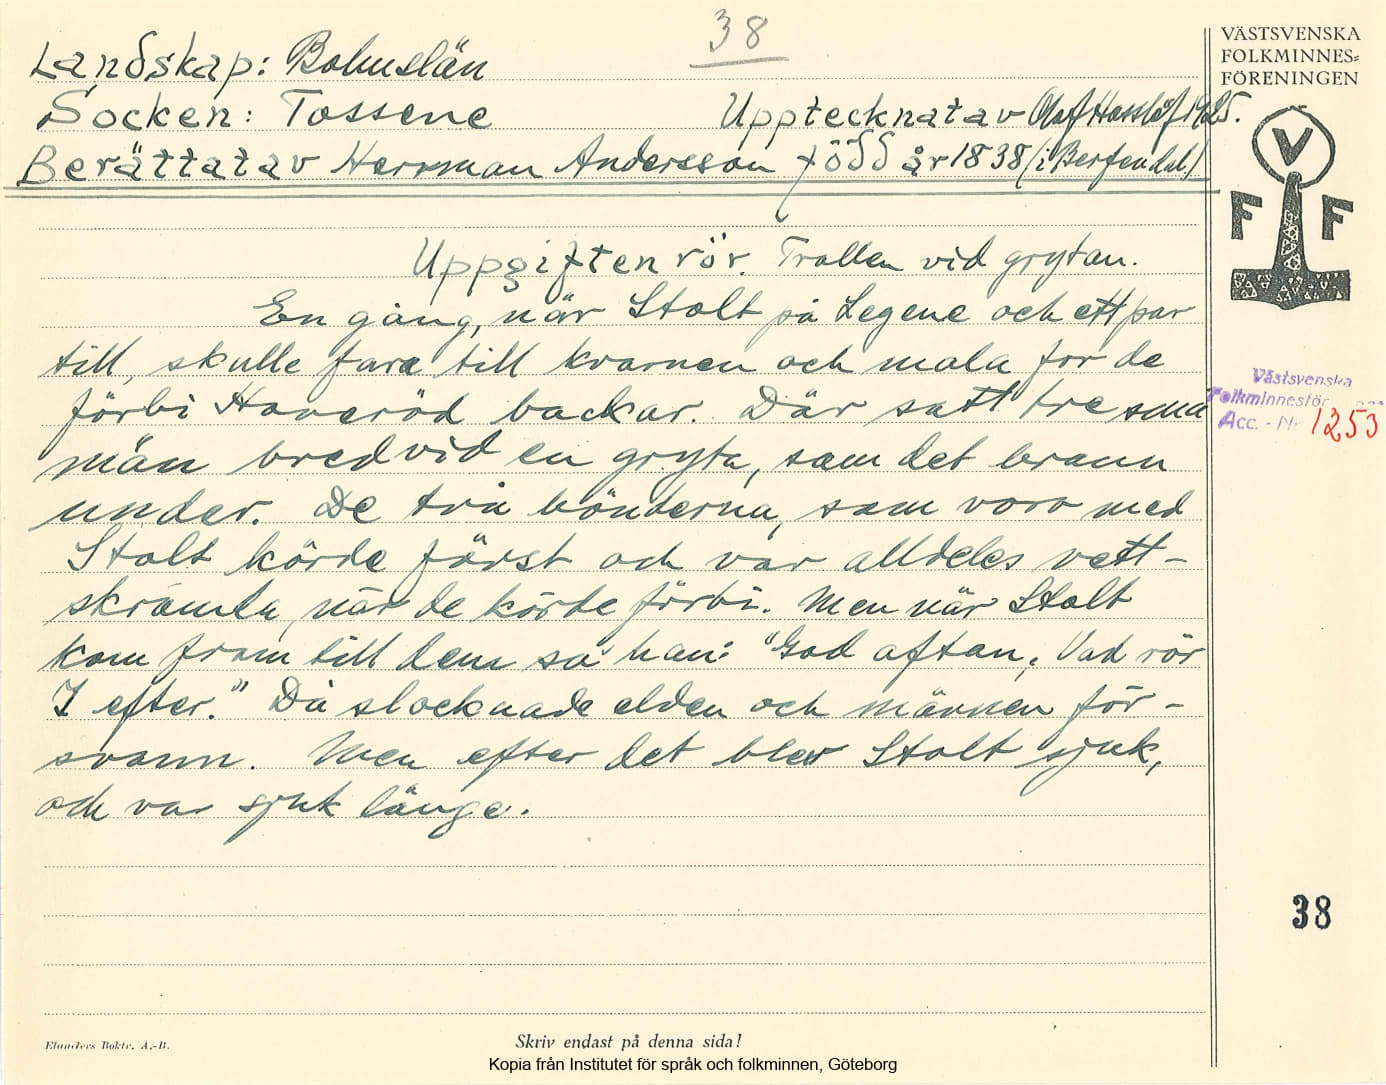 38
VÄSTSVENSKA
FOLKMINNES-
FÖRENINGEN
Landskap: Bohuslän
Socken: Tossene Upptecknat av Olof Hasslöf 1925.
Berättat av Herrman Andersson född år 1838 (i Berfendal.)
V
F F
Uppgiften rör. Trollen vid grytan.
En gång, när Stolt på Legene och ett par
till, skulle fara till kvarnen och mala for de
förbi Haveröd backar. Där satt tre små
män bredvid en gryta, som det brann
under. De två bönderna, som voro med
Stolt körde först och var alldeles vett-
skrämda, när de körde förbi. Men när Stolt
kom fram till dem sa han: "God aftan, Vad rör
I efter." Då slocknade elden och männen för-
svann. Men efter det blev Stolt sjuk,
och var sjuk länge.
Västsvenska
Folkminnesför
Acc. - Nr 1253
38
Elanders Boktr. A.-B.
Skriv endast på denna sida!
Kopia från Institutet för språk och folkminnen, Göteborg